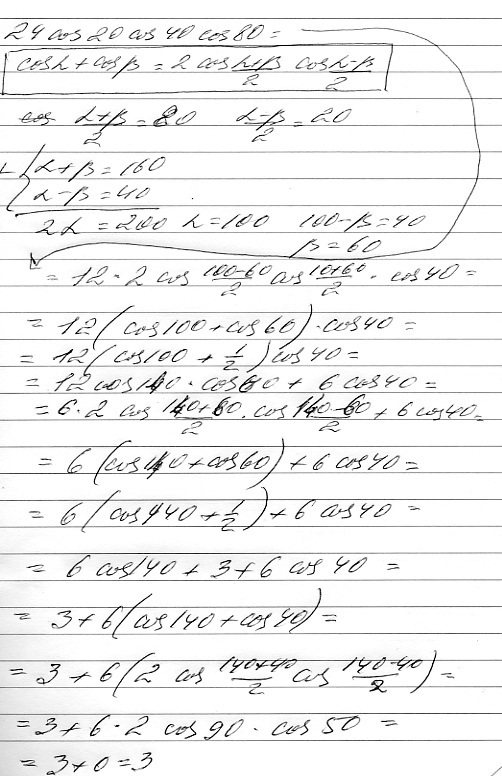 24 cos 20 cos 40 cos 80 =
cos α + cos β = 2 cos (α+β)/2 cos (α-β)/2
(α+β)/2 = 80 (α-β)/2 = 20
α+β = 160
α-β = 40
2α = 200 α = 100 100-β = 40
β = 60
= 12 · 2 cos (100-60)/2 cos (100+60)/2 · cos 40 =
= 12 (cos 100 + cos 60) · cos 40 =
= 12 (cos 100 + 1/2) cos 40 =
= 12 cos 100 · cos 40 + 6 cos 40 =
= 6 · 2 cos (140+60)/2 · cos (140-60)/2 + 6 cos 40 =
= 6 (cos 140 + cos 60) + 6 cos 40 =
= 6 (cos 140 + 1/2) + 6 cos 40 =
= 6 cos 140 + 3 + 6 cos 40 =
= 3 + 6 (cos 140 + cos 40) =
= 3 + 6 (2 cos (140+40)/2 cos (140-40)/2) =
= 3 + 6 · 2 cos 90 · cos 50 =
= 3 + 0 = 3